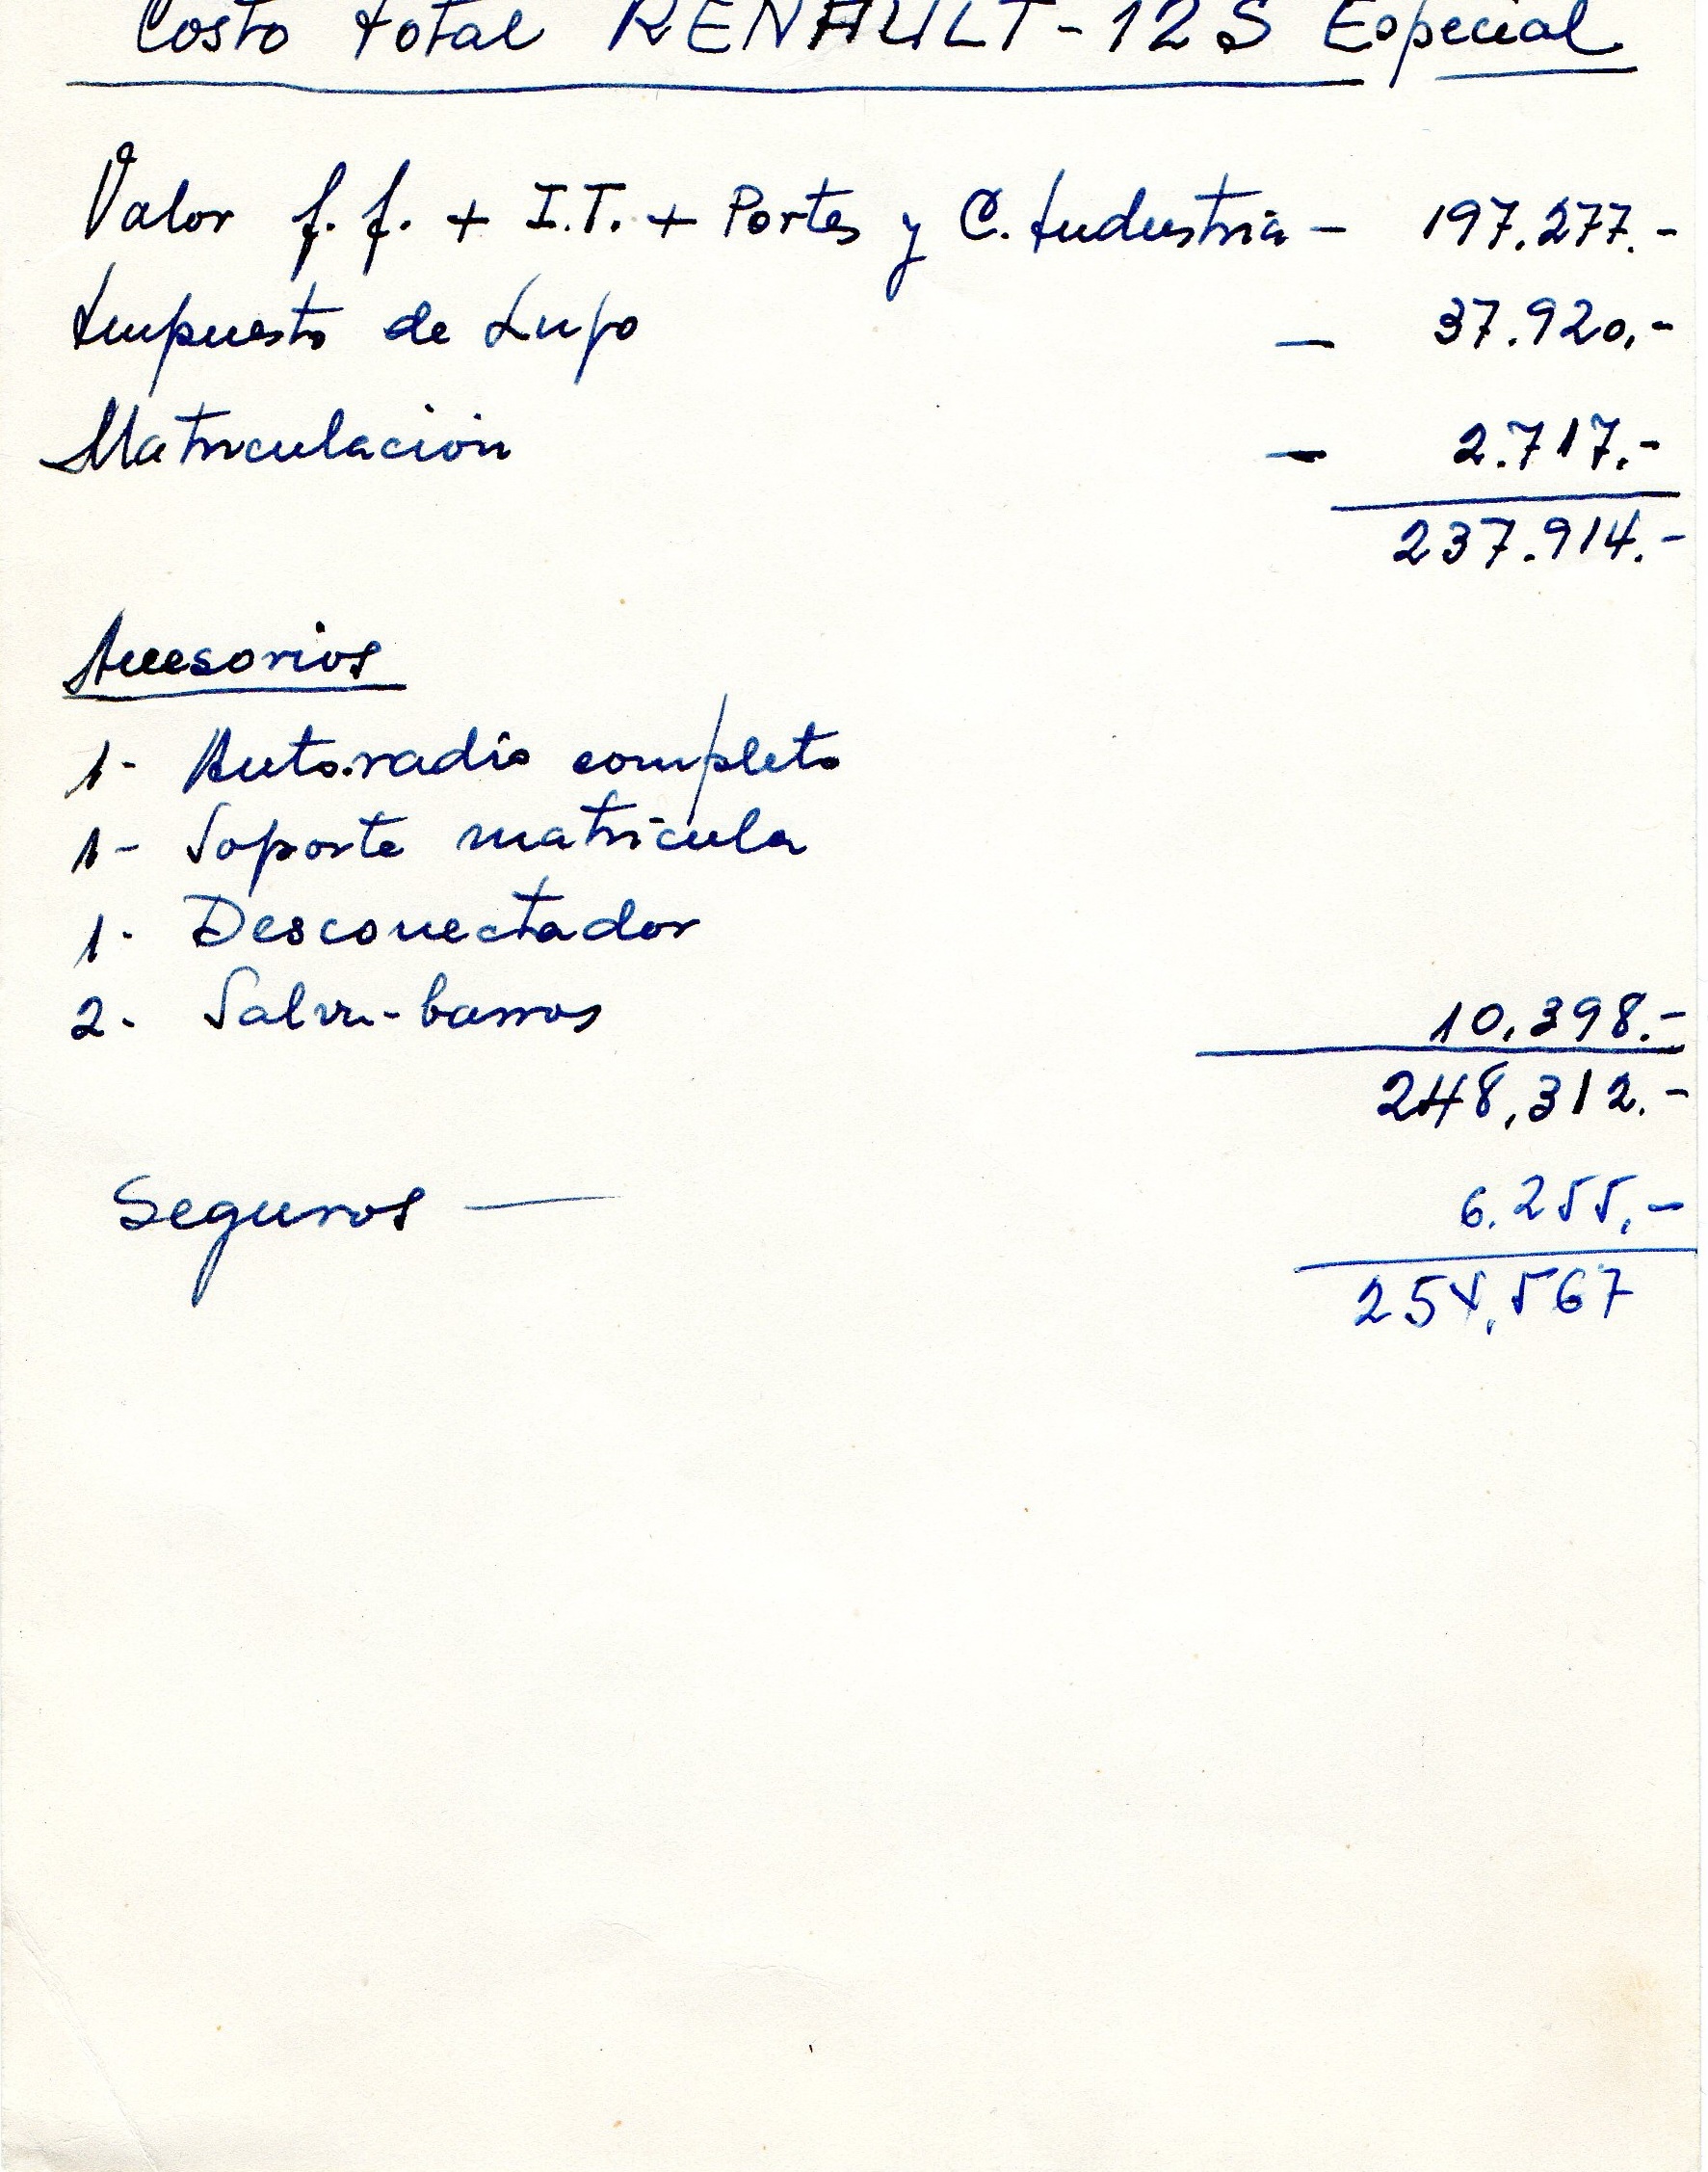 Costo total RENAULT-12S Especial
Valor f.f. + I.T. + Portes y C. Industria - 197.277.-
Impuesto de Lujo - 37.920,-
Matriculación - 2.717.-
237.914.-
Accesorios
1- Auto-radio completo
1- Soporte matrícula
1- Desconectador
2- Salva-barros 10,398.-
248,312.-
Seguros — 6.255,-
254,567